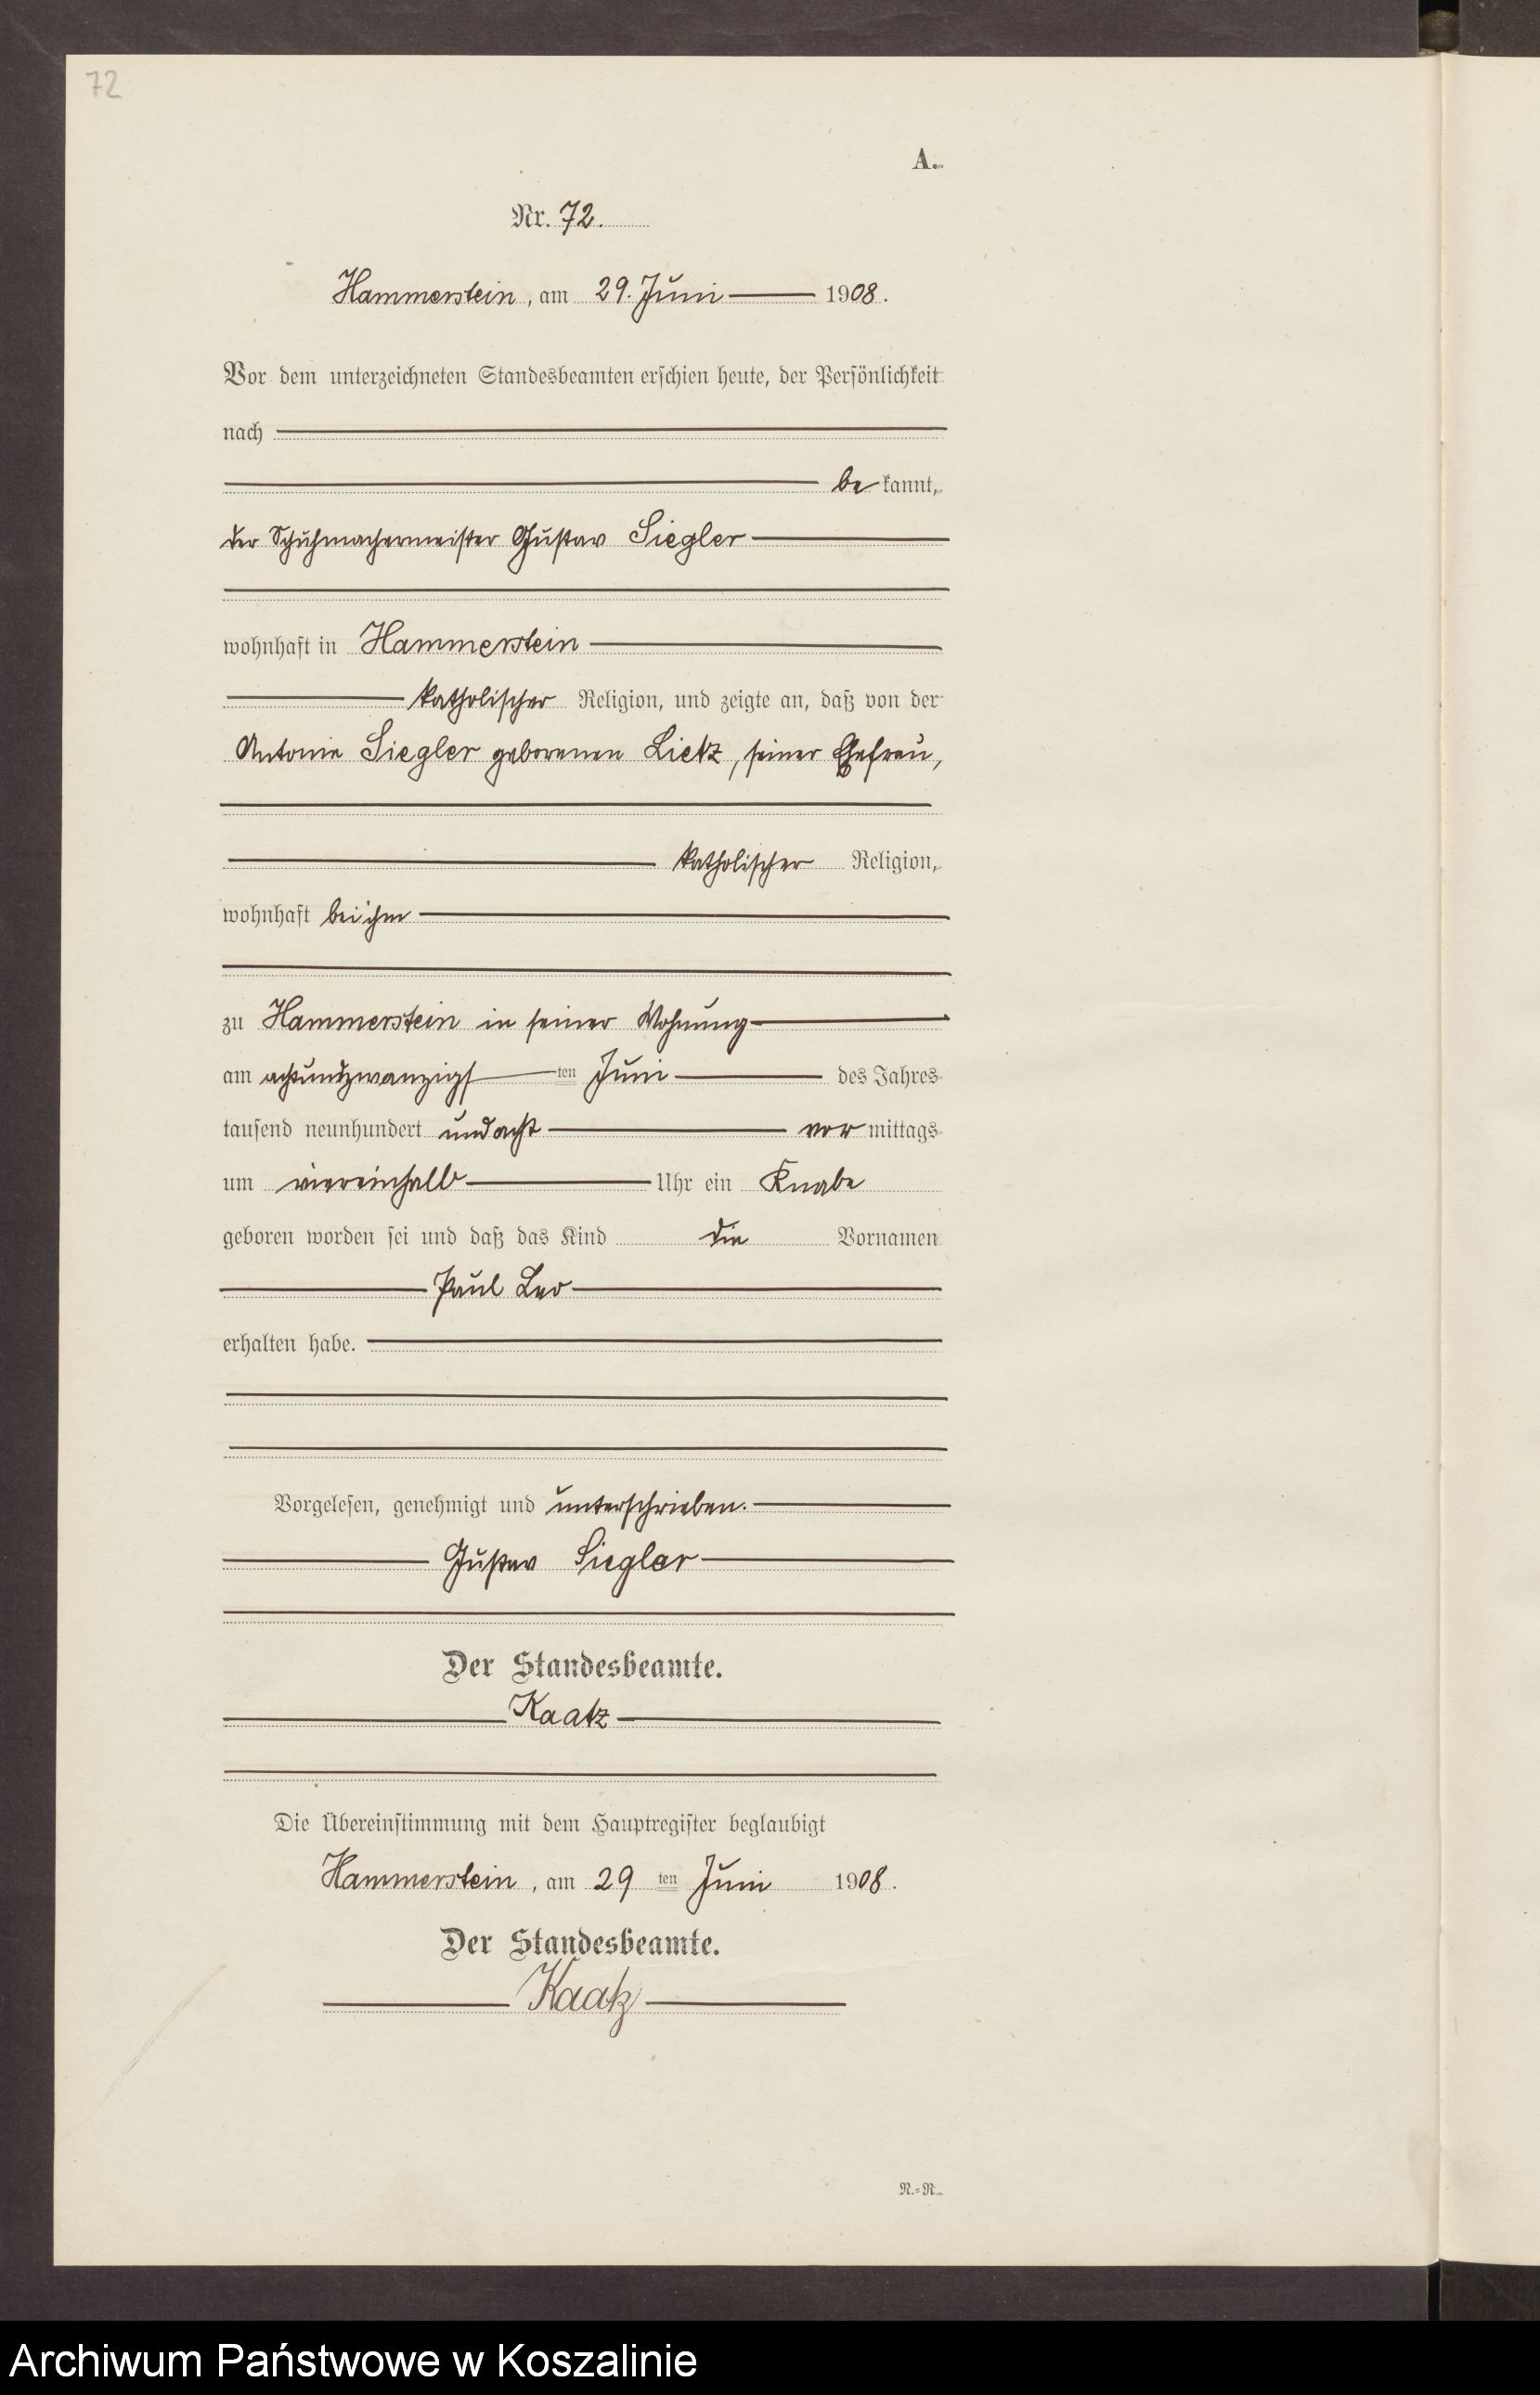 72
A.
Nr. 72.
Hammerstein, am 29. Juni 1908.
Vor dem unterzeichneten Standesbeamten erschien heute, der Persönlichkeit
nach
be kannt,
der Schuhmachermeister Gustav Siegler
wohnhaft in Hammerstein
katholischer Religion, und zeigte an, daß von der
Antonie Siegler geborenen Lietz, seiner Ehefrau,
katholischer Religion,
wohnhaft bei ihm
zu Hammerstein in seiner Wohnung
am achtundzwanzigs ten Juni des Jahres
tausend neunhundert und acht vor mittags
um viereinhalb Uhr ein Knabe
geboren worden sei und daß das Kind die Vornamen
Paul Leo
erhalten habe.
Vorgelesen, genehmigt und unterschrieben.
Gustav Siegler
Der Standesbeamte.
Kaatz
Die Übereinstimmung mit dem Hauptregister beglaubigt
Hammerstein, am 29 ten Juni 1908.
Der Standesbeamte.
Kaatz
N.=R.
Archiwum Państwowe w Koszalinie